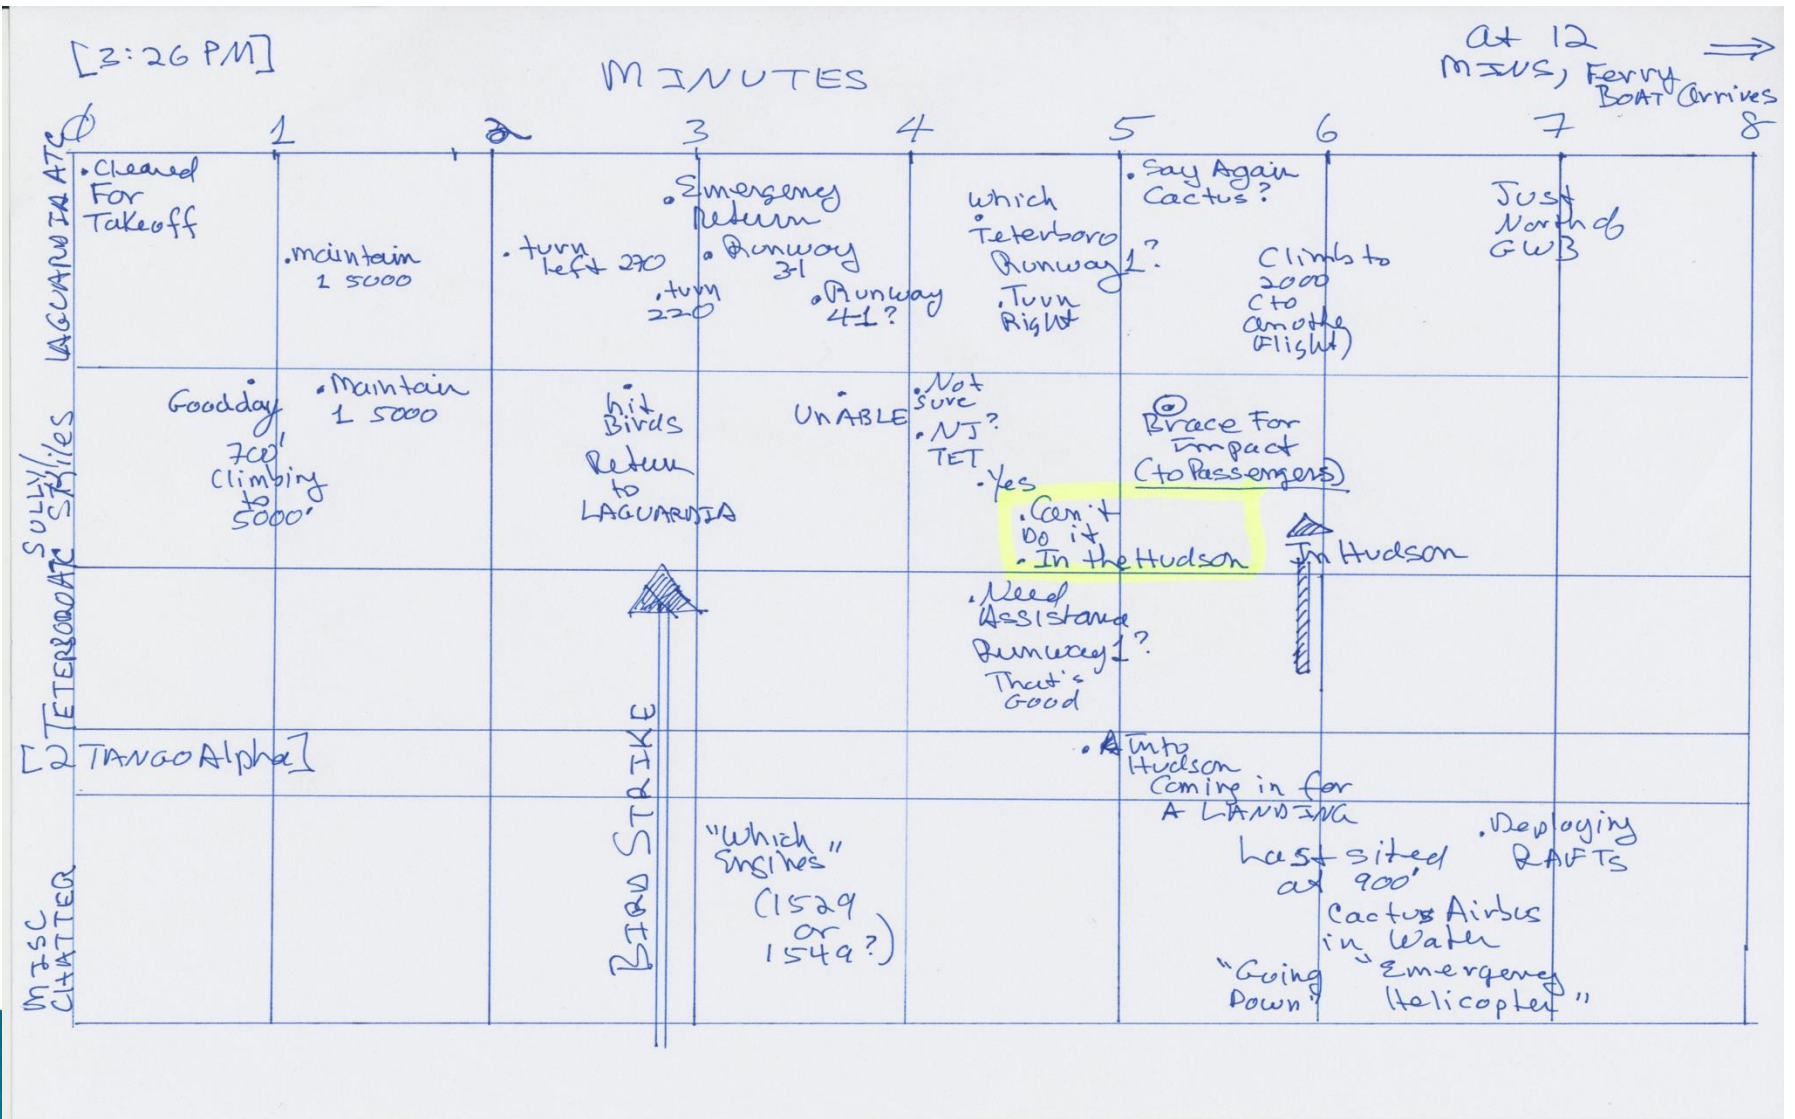 [3:26 PM]
MINUTES
at 12
MINS, Ferry
BOAT arrives
0 1 2 3 4 5 6 7 8
LAGUARDIA ATC
• Cleared
For
Takeoff
• maintain
1 5000
• turn
left 270
• turn
220
• Emergency
Return
• Runway
31
• Runway
41?
which
• Teterboro
Runway 1?
• Turn
Right
• Say Again
Cactus?
Climb to
2000
(to
anothe
Flight)
Just
North of
GWB
SULLY/
Skiles
Goodday
700'
Climbing
to
5000'
• Maintain
1 5000
hit
Birds
Return
to
LAGUARDIA
UnABLE
• Not
sure
• NJ?
TET
• Yes
• Can't
Do it
• In the Hudson
Brace For
Impact
(to Passengers)
In Hudson
TETERBORO ATC
• Need
Assistance
Runway 1?
That's
Good
BIRD STRIKE
[2 TANGO Alpha]
• Into
Hudson
Coming in for
A LANDING
MISC
CHATTER
"Which
Engines"
(1529
or
1549?)
Last sited
at 900'
• Deploying
RAFTs
Cactus Airbus
in Water
"Going
Down"
"Emergency
Helicopter"